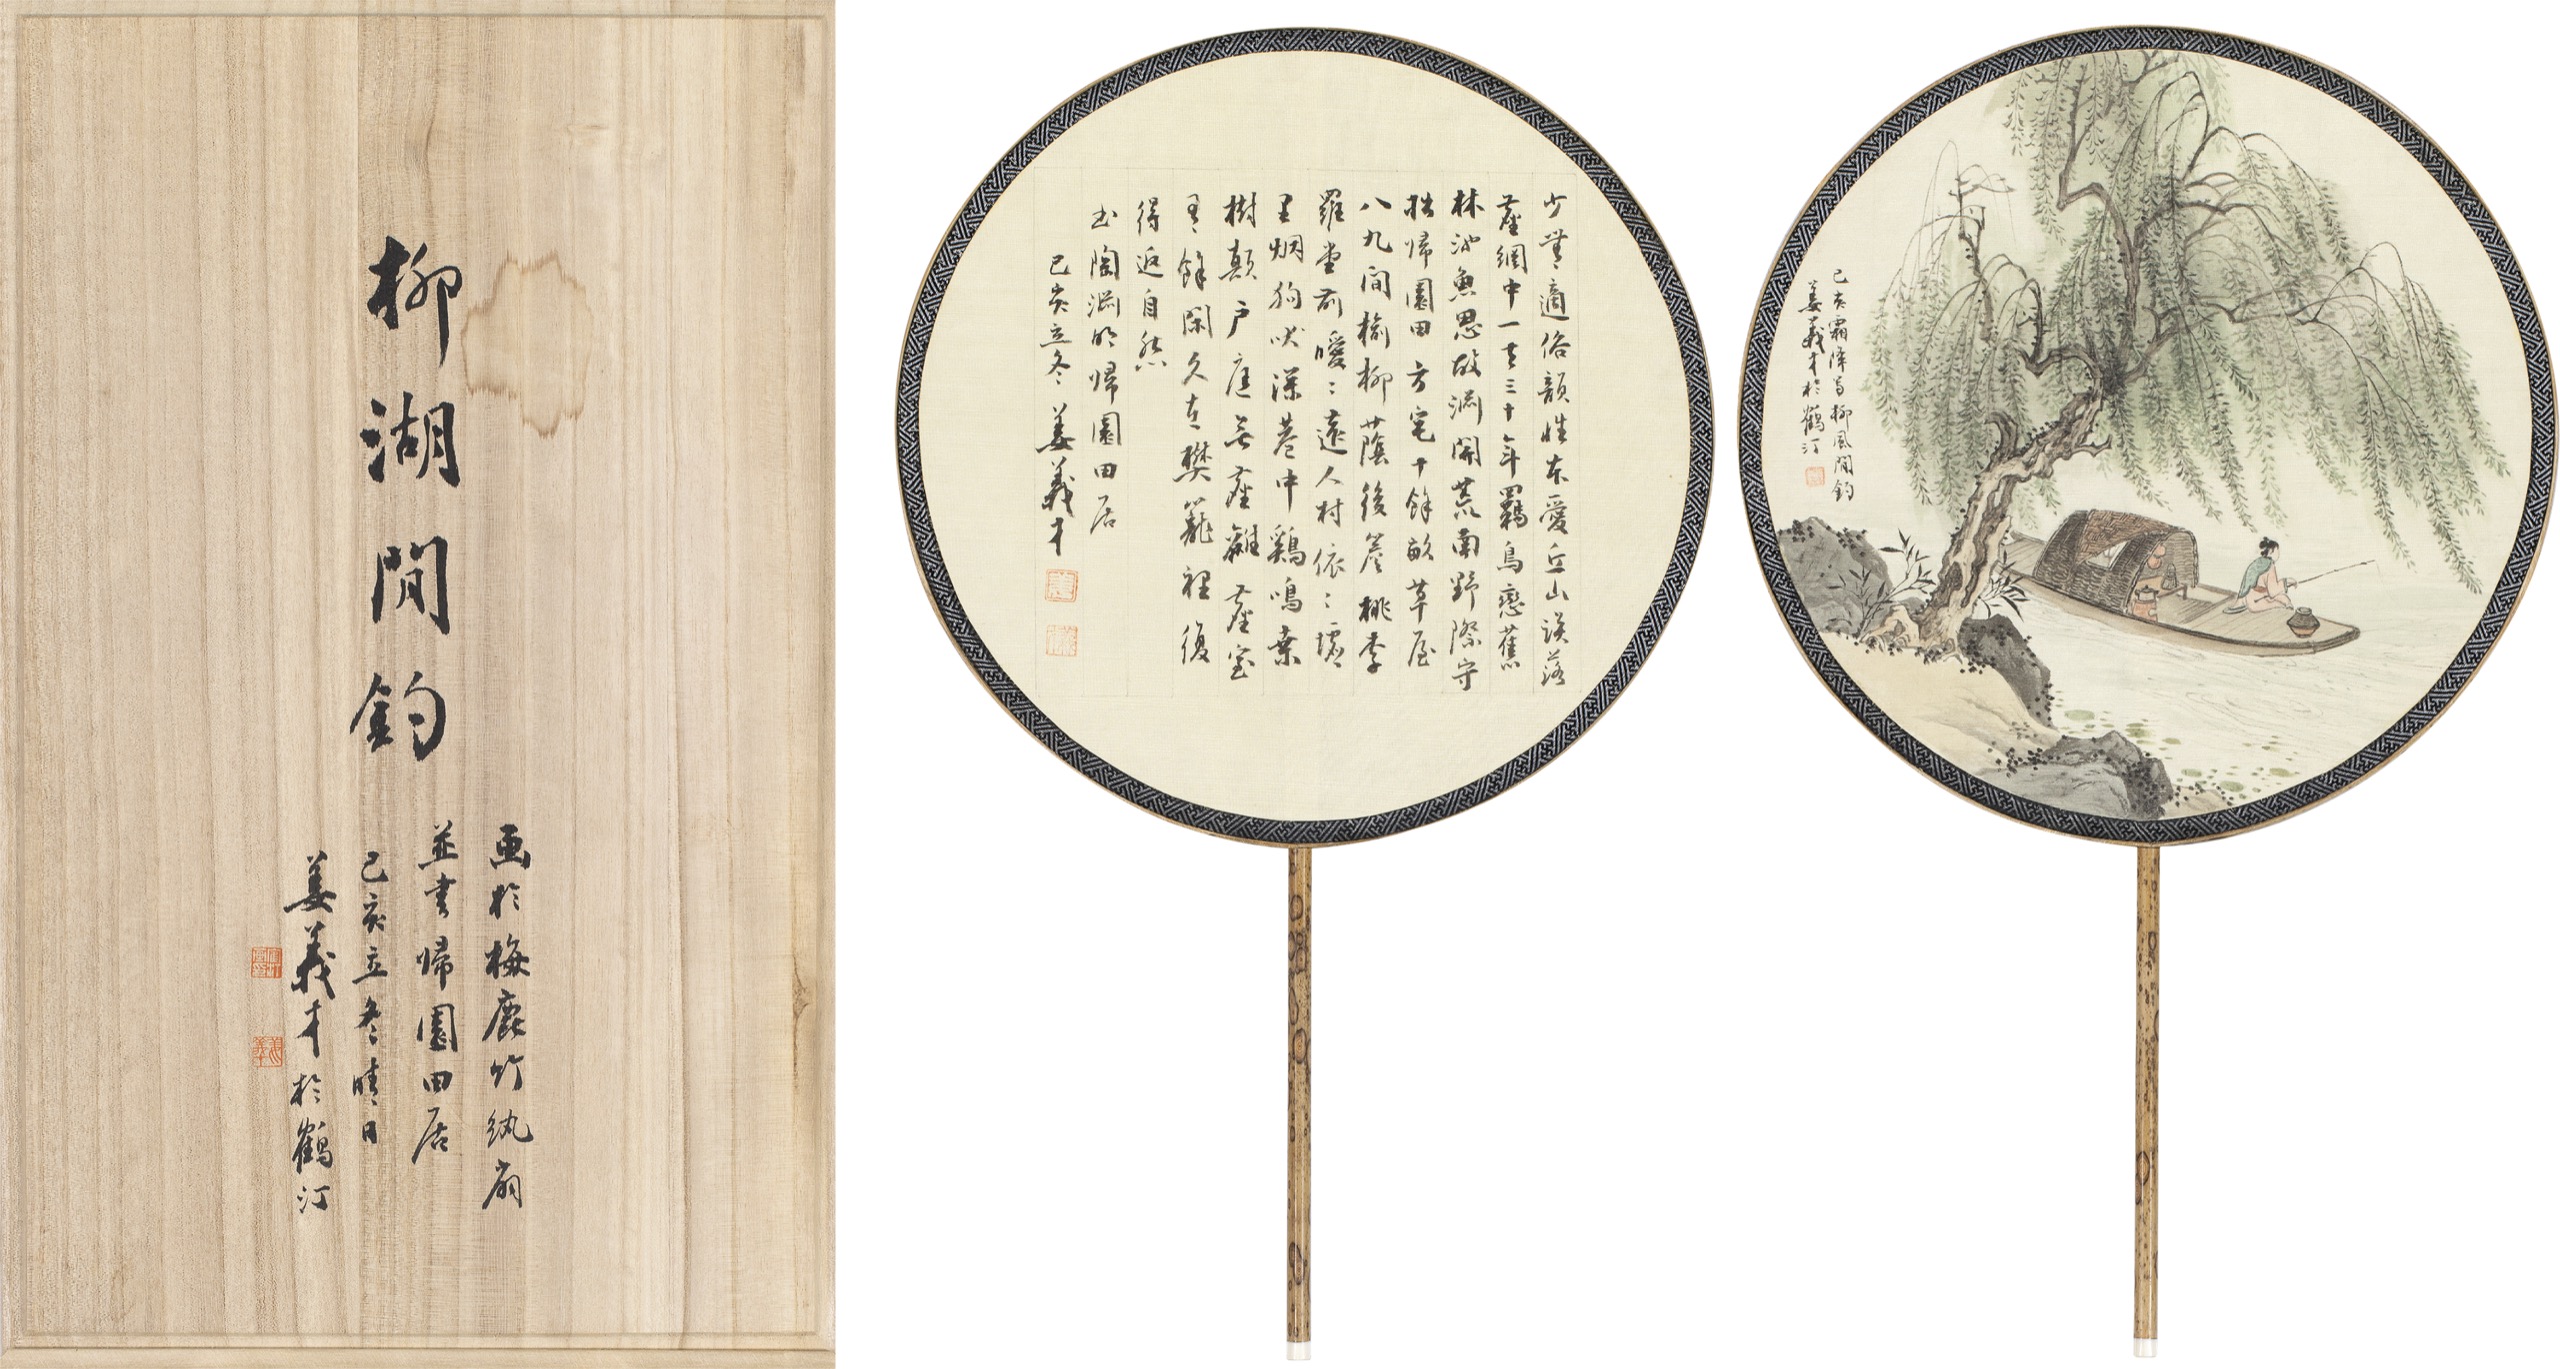 柳湖閒釣
画於梅鹿竹紈扇
並書歸園田居
己亥立冬晴日
姜義才於鶴汀
少無適俗韻性本愛丘山誤落
塵網中一去三十年羈鳥戀舊
林池魚思故淵開荒南野際守
拙歸園田方宅十餘畝草屋
八九間榆柳蔭後簷桃李
羅堂前曖〻遠人村依〻墟
里烟狗吠深巷中鷄鳴桑
樹顛戶庭無塵雜虛室
有餘閑久在樊籠裡復
得返自然
書陶淵明歸園田居
己亥立冬姜義才
己亥霜降寫柳風閒釣
姜義才於鶴汀